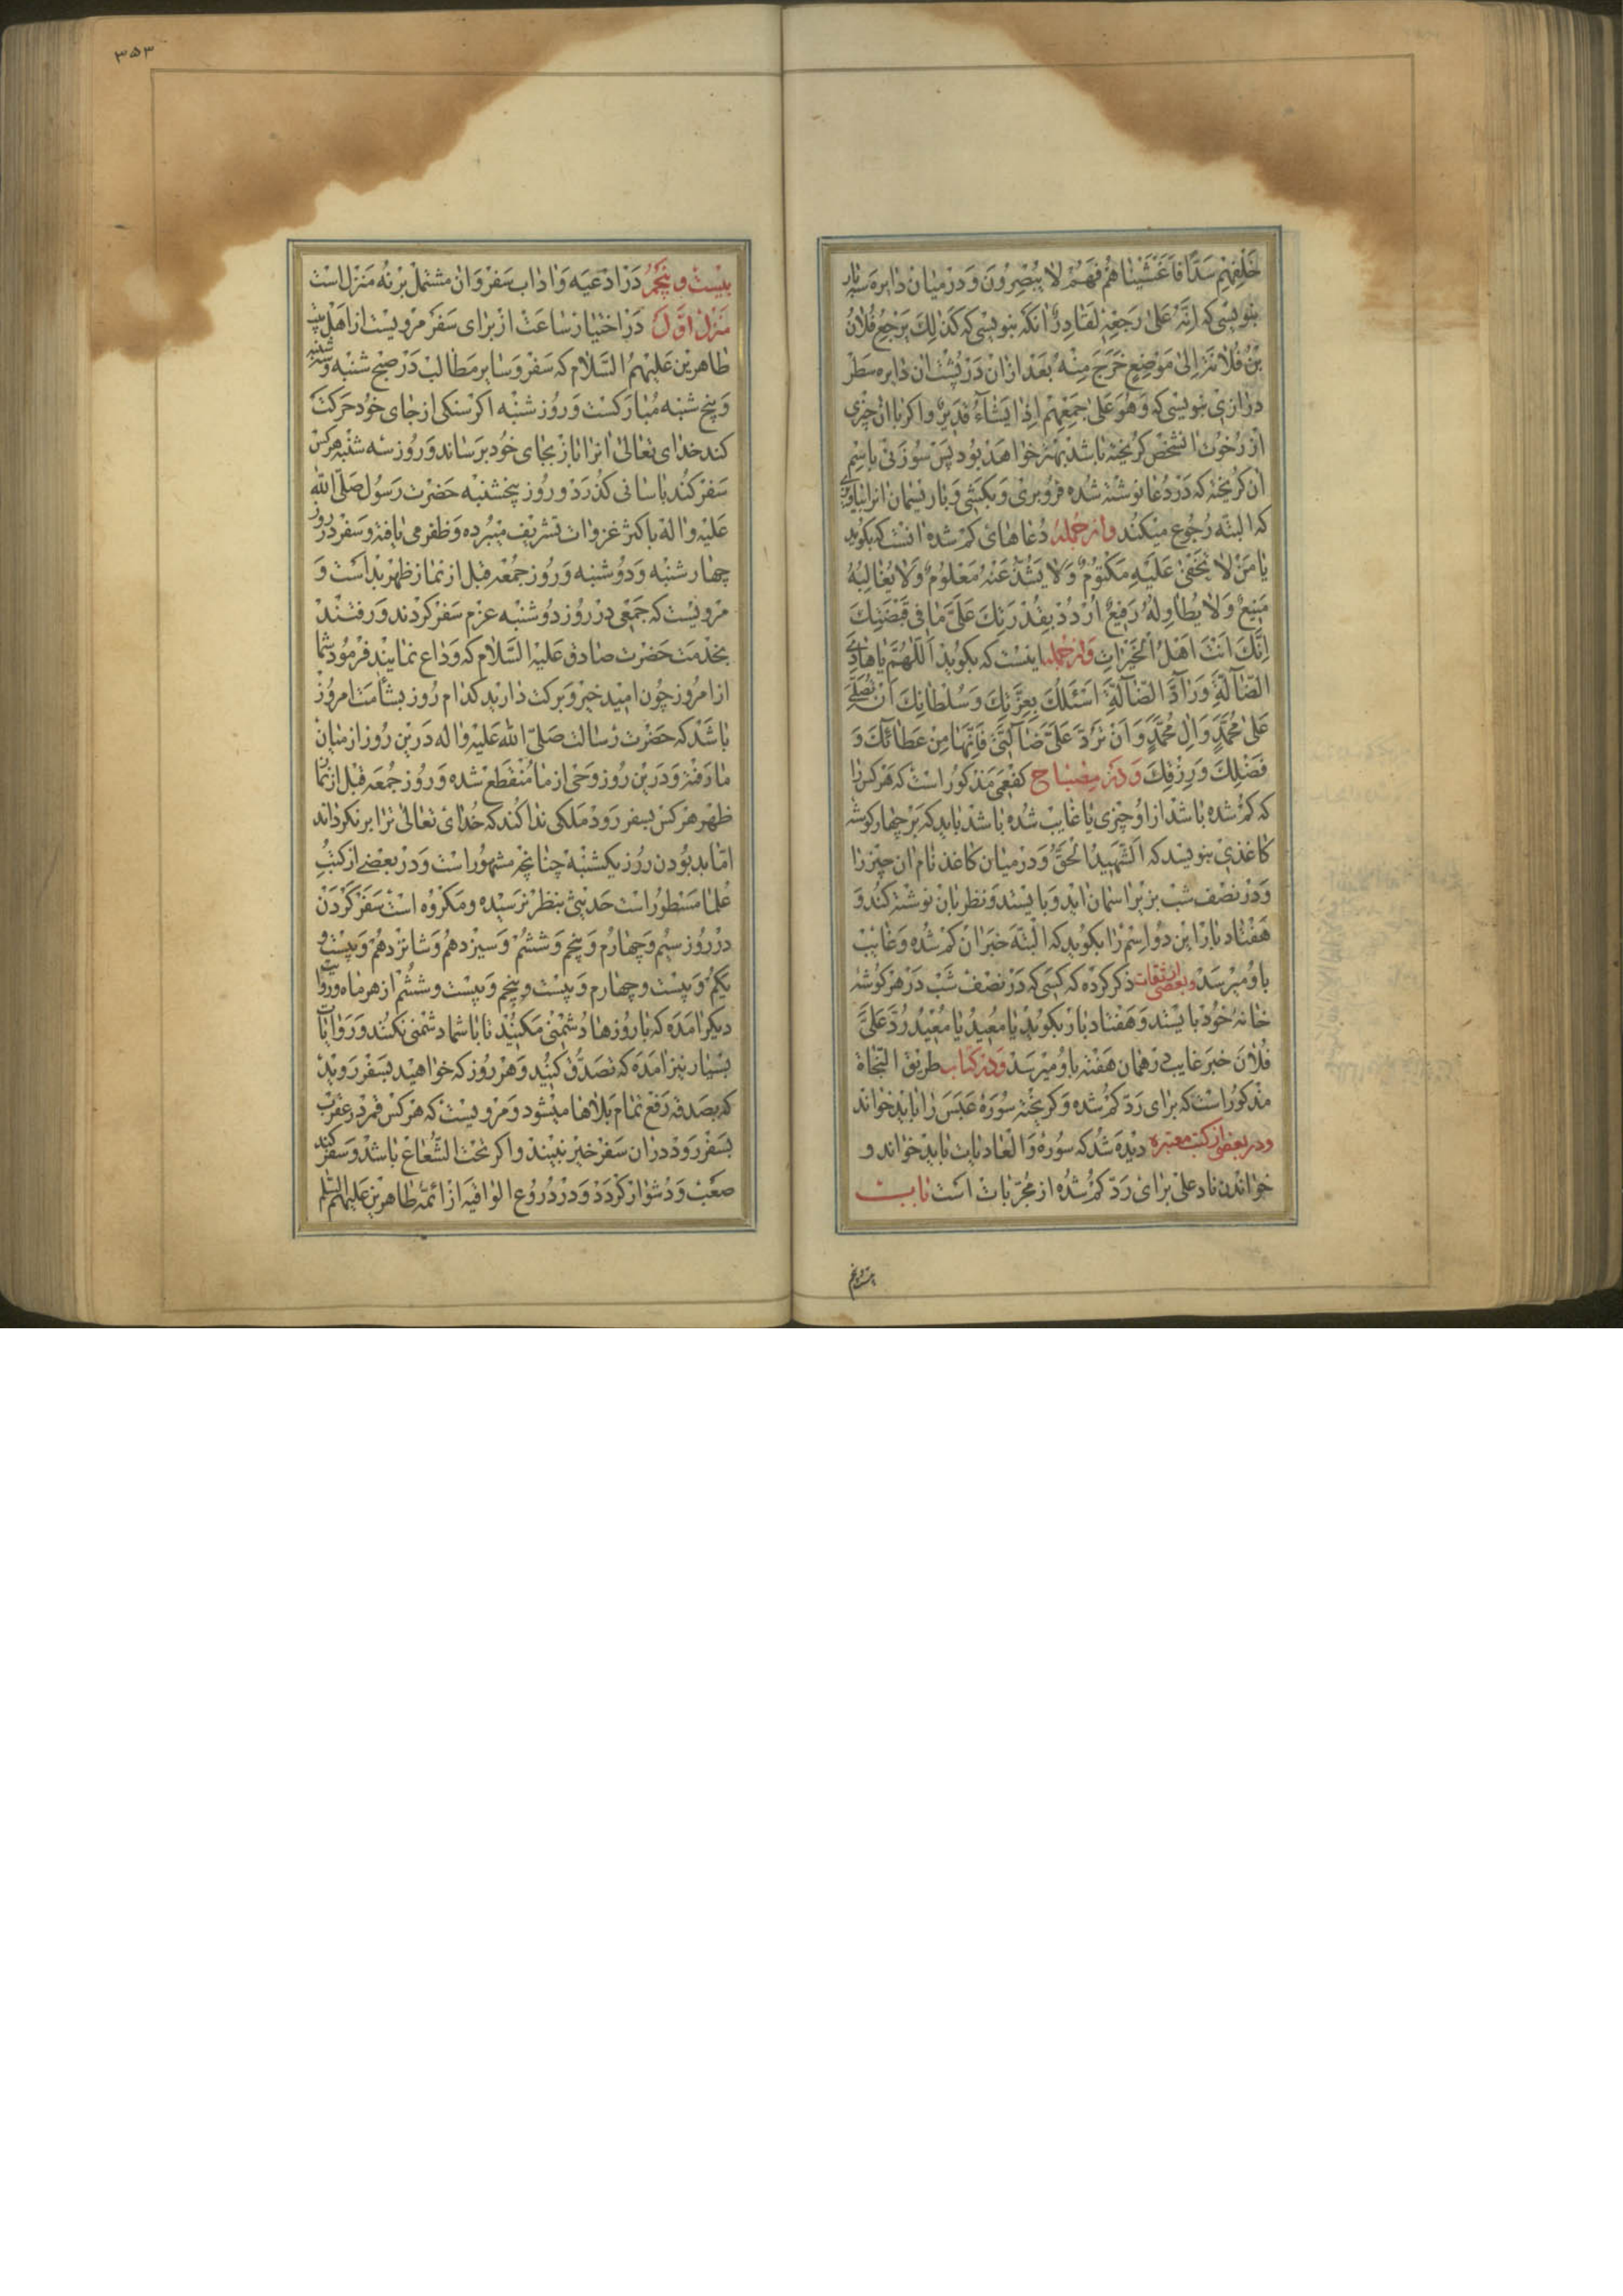 خَلْفِهِمْ سَدًّا فَاَغْشَيْنٰاهُمْ فَهُمْ لٰا يُبْصِرُونَ وَدَر ميٰان دٰايره سه بار
بنويسى كه اِنَّهُ عَلىٰ رَجْعِهِ لَقٰادِرٌ انكه بنويسى كه كَذٰلِكَ يَرْجِعُ فُلٰانُ
بْنُ فُلٰانَةَ اِلىٰ مَوْضِعٍ خَرَجَ مِنْهُ بعد ازان در پشت ان دايره سطر
درازى بنويسى كه وَهُوَ عَلىٰ جَمْعِهِمْ اِذٰا يَشٰاءُ قَديرٌ واكر باان چيزى
از رخوت انشخص كريخته باشد بهتر خواهد بود پس سوزنى باسم
ان كريخته كه در دعا نوشته شده فروبرى وبكشى وبا ريسمان انرا بياويزى
كه البته رجوع ميكند وازجمله دعاهاى كم شده انست كه بكويد
يٰا مَنْ لٰا يَخْفىٰ عَلَيْهِ مَكْتُومٌ وَلٰا يَشُذُّ عَنْهُ مَعْلُومٌ وَلٰا يُغٰالِبُهُ
مَنيعٌ وَلٰا يُطٰاوِلُهُ رَفيعٌ اُرْدُدْ بِقُدْرَتِكَ عَلَىَّ مٰا فى قَبْضَتِكَ
اِنَّكَ اَنْتَ اَهْلُ الْخَيْرٰاتِ وازجمله اينست كه بكويد اَللّٰهُمَّ يٰا هٰادِىَ
الضّٰالَّةِ وَرٰادَّ الضّٰالَّةِ اَسْئَلُكَ بِعِزَّتِكَ وَسُلْطٰانِكَ اَنْ تُصَلِّىَ
عَلىٰ مُحَمَّدٍ وَاٰلِ مُحَمَّدٍ وَاَنْ تَرُدَّ عَلَىَّ ضٰالَّتى فَاِنَّهٰا مِنْ عَطٰائِكَ وَ
فَضْلِكَ وَرِزْقِكَ ودر مصباح كفعمى مذكور است كه هركس را
كه كم شده باشد از او چيزى يا غايب شده باشد بايد كه بر چهار كوشه
كاغذى بنويسد كه اَلشَّهيدُ الْحَقُّ ودرميان كاغذ نام ان چيز را
ودر نصف شب بزير اسمان ايد وبايستد ونظر بان نوشته كند و
هفتاد بار اين دو اسم را بكويد كه البته خبر ان كم شده وغايب
باو ميرسد وبعضى از ثقات ذكر كرده كه كسى كه در نصف شب در هر كوشهٔ
خانهٔ خود بايستد وهفتاد بار بكويد يٰا مُعيدُ يٰا مُعيدُ رُدَّ عَلَىَّ
فُلٰانَ خبر غايب در همان هفته باو ميرسد ودر كتاب طريق النجاة
مذكور است كه براى رد كم شده وكريخته سورهٔ عبس را بايد خواند
ودر بعضى از كتب معتبره ديده شد كه سوره والعاديات بايد خواند و
خواندن ناد على براى رد كم شده از مجربات است باب
بيست وپنجم
٣٥٣
بيست وپنجم در ادعيه واداب سفر وان مشتمل بر نه منزل است
منزل اول در اختيار ساعت از براى سفر مرويست از اهل بيت
طاهرين عليهم السلام كه سفر وساير مطالب در صبح شنبه وسه شنبه
وپنج شنبه مباركست وروز شنبه اكر سنكى از جاى خود حركت
كند خداى تعالى انرا باز بجاى خود برساند وروز سه شنبه هركس
سفر كند باسانى كذرد وروز پنجشنبه حضرت رسول صلى الله
عليه واله باكثر غزوات تشريف ميبرده وظفر مى يافته وسفر در روز
چهار شنبه ودو شنبه وروز جمعه قبل از نماز ظهر بد است و
مرويست كه جمعى در روز دو شنبه عزم سفر كردند ورفتند
بخدمت حضرت صادق عليه السلام كه وداع نمايند فرمود شما
از امروز چون اميد خير وبركت داريد كدام روز بشامت امروز
باشد كه حضرت رسالت صلى الله عليه واله درين روز از ميان
ما رفته ودرين روز وحى از ما منقطع شده وروز جمعه قبل از نماز
ظهر هركس بسفر رود ملكى ندا كند كه خداى تعالى ترا برنكرداند
اما بد بودن روز يكشنبه چنانچه مشهور است ودر بعضى از كتب
علما مسطور است حديثى بنظر نرسيده ومكروه است سفر كردن
در روز سيم وچهارم وپنجم وششم وسيزدهم وشانزدهم وبيست و
يكم وبيست وچهارم وبيست وپنجم وبيست وششم از هر ماه وروايت
ديكر امده كه با روزها دشمنى مكنيد تا با شما دشمنى نكنند وروايات
بسيار نيز امده كه تصدق كنيد وهر روز كه خواهيد بسفر رويد
كه بصدقه رفع تمام بلاها ميشود ومرويست كه هركس قمر در عقرب
بسفر رود دران سفر خير نبيند واكر تحت الشعاع باشد وسفر كند
صعب ودشوار كردد ودر دروع الواقيه از ائمه طاهرين عليهم السلم